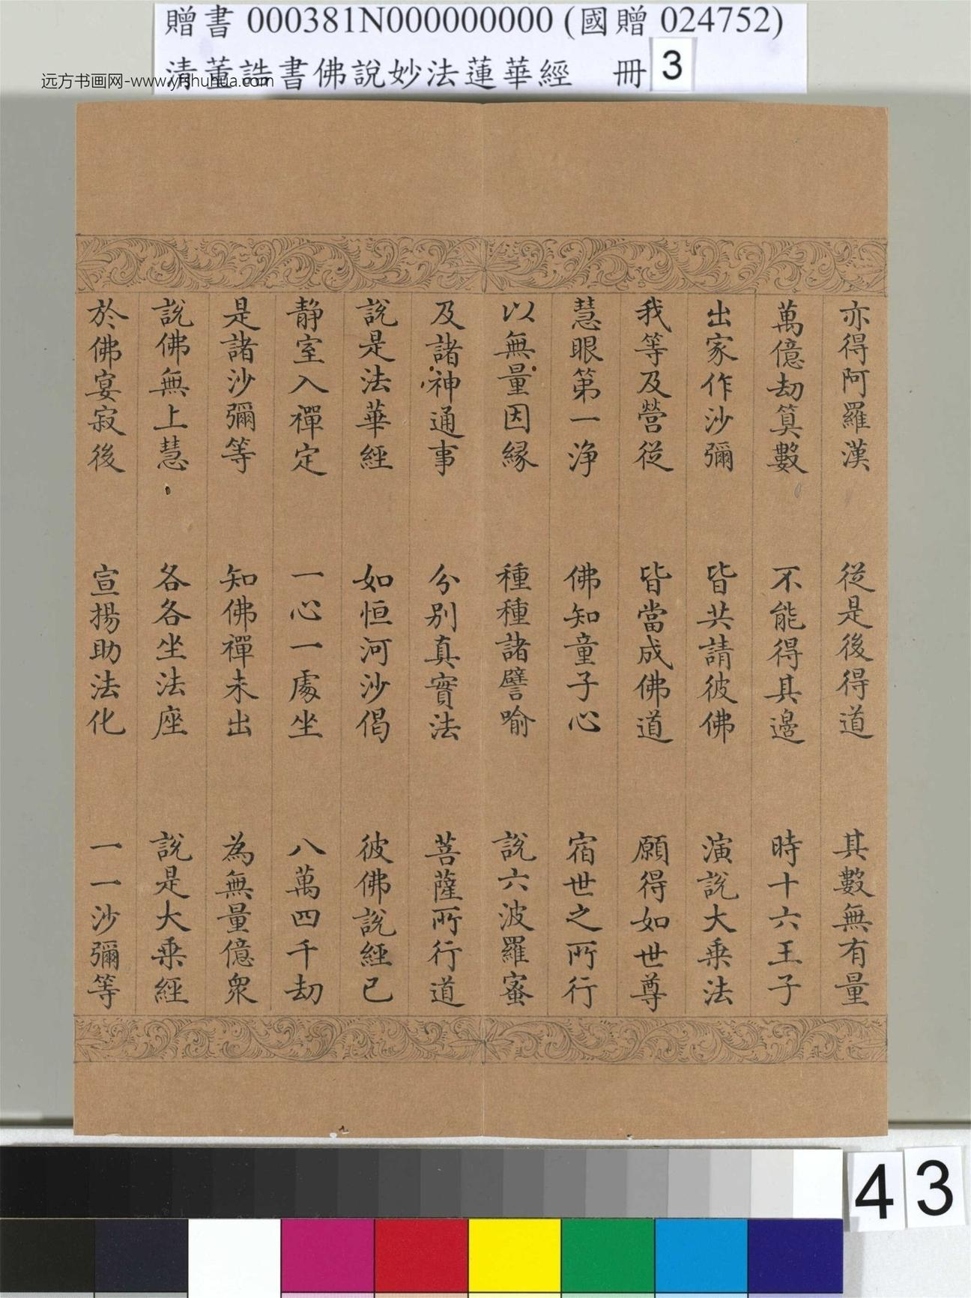 贈書 000381N000000000 (國贈 024752)
清董誥書佛說妙法蓮華經 冊 3
远方书画网-www.yfshuhua.com
亦得阿羅漢 從是後得道 其數無有量
萬億劫算數 不能得其邊 時十六王子
出家作沙彌 皆共請彼佛 演說大乘法
我等及營從 皆當成佛道 願得如世尊
慧眼第一淨 佛知童子心 宿世之所行
以無量因緣 種種諸譬喻 說六波羅蜜
及諸神通事 分別真實法 菩薩所行道
說是法華經 如恒河沙偈 彼佛說經已
靜室入禪定 一心一處坐 八萬四千劫
是諸沙彌等 知佛禪未出 為無量億眾
說佛無上慧 各各坐法座 說是大乘經
於佛宴寂後 宣揚助法化 一一沙彌等
43